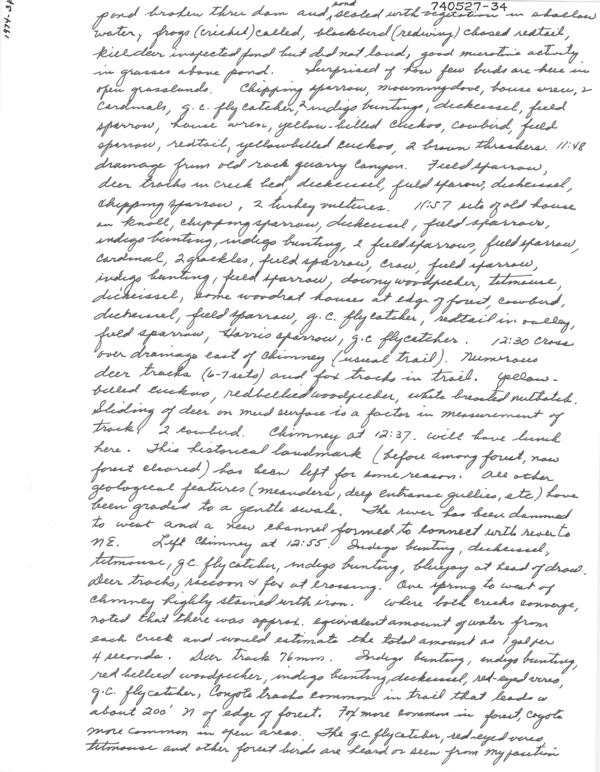 740527-34
1974-34
pond broken thru dam and pond sealed with vegetation in shallow
water, frogs (cricket) called, blackbird (redwing) chased redtail,
killdeer inspected pond but did not land, good microtis activity
in grasses above pond. Surprised of how few birds are here in
open grasslands. Chipping sparrow, mourning dove, house wren, 2
cardinals, g.c. flycatcher, 2 indigo buntings, dickcissel, field
sparrow, house wren, yellow-billed cuckoo, cowbird, field
sparrow, redtail, yellowbilled cuckoo, 2 brown thrashers. 11:48
drainage from old rock quarry canyon. Field sparrow,
deer tracks in creek bed, dickcissel, field sparow, dickcissel,
chipping sparrow, 2 turkey vultures. 11:57 site of old house
on knoll, chipping sparrow, dickcissel, field sparrow,
indigo bunting, indigo bunting, 2 field sparrows, field sparrow,
cardinal, 2 grackles, field sparrow, crow, field sparrow,
indigo bunting, field sparrow, downy woodpecker, titmouse,
dickcissel, some woodrat houses at edge of forest, cowbird,
dickcissel, field sparrow, g.c. flycatcher, redtail in valley,
field sparrow, Harris sparrow, g.c flycatcher. 12:30 cross
over drainage east of chimney (usual trail). Numerous
deer tracks (6-7 sets) and fox tracks in trail. Yellow-
billed cuckoo, redbellied woodpecker, white breasted nuthatch.
Sliding of deer on mud surface is a factor in measurement of
track. 2 cowbird. Chimney at 12:37. will have lunch
here. This historical landmark (before among forest, now
forest cleared) has been left for some reason. All other
geological features (meanders, deep entrance gullies, etc) have
been graded to a gentle swale. The river has been dammed
to west and a new channel formed to connect with river to
NE. Left Chimney at 12:55. Indigo bunting, dickcissel,
titmouse, g.c. flycatcher, indigo bunting, bluejay at head of draw.
Deer tracks, raccoon & fox at crossing. One spring to west of
chimney highly stained with iron. Where both creeks converge,
noted that there was approx. equivalent amount of water from
each creek and would estimate the total amount as 1 gal per
4 seconds. Deer track 76mm. Indigo bunting, indigo bunting,
red bellied woodpecker, indigo bunting, dickcissel, red-eyed vireo,
g.c. flycatcher, Coyote tracks common in trail that leads w
about 200' N of edge of forest. Fox more common in forest, coyote
more common in open areas. The g.c flycatcher, red-eyed vireo,
titmouse and other forest birds are heard or seen from my position